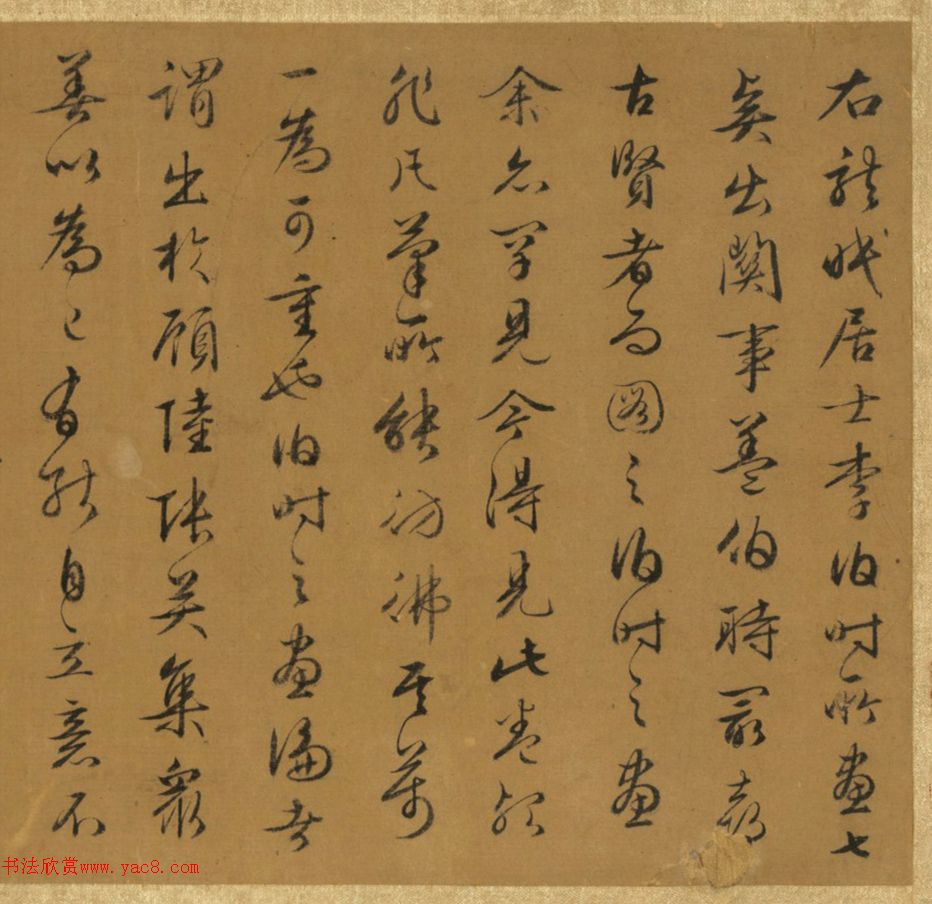 右龍眠居士李伯時所畫七
出關事蓋伯時最
古賢者而圖之伯時之畫
余亦罕見今得見此卷殆
非凡筆所能彷彿其萬
一為可重也伯時之畫論者
謂出於顧陸張吳集眾
善以為己有能自立意不
书法欣赏www.yac8.com